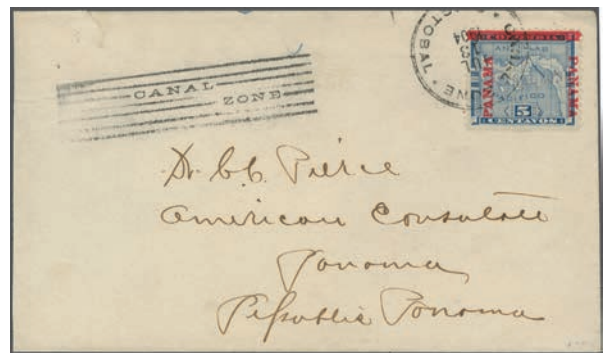 CANAL
ZONE
CRISTOBAL
1904
ZONE
PANAMA
PANAMA
5
CENTAVOS
Dr. C.C. Pierce
American Consulate
Panama
Republic Panama